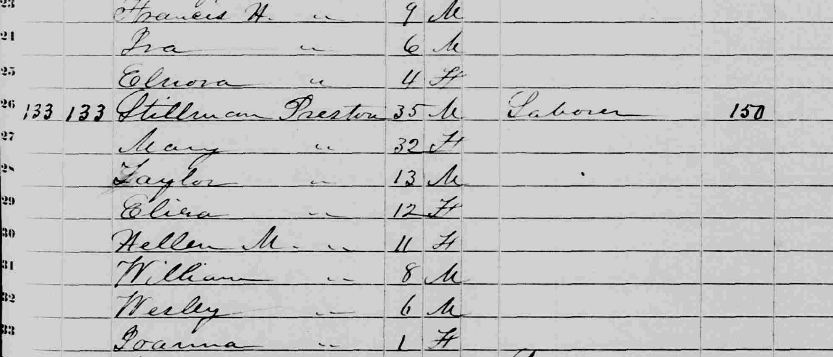 23 Francis H. " 9 M
24 Ira " 6 M
25 Elnora " 4 F
26 133 133 Stillman Preston 35 M Laborer 150
27 Mary " 32 F
28 Taylor " 13 M
29 Eliza " 12 F
30 Hellen M. " 11 F
31 William " 8 M
32 Wesley " 6 M
33 Joanna " 1 F